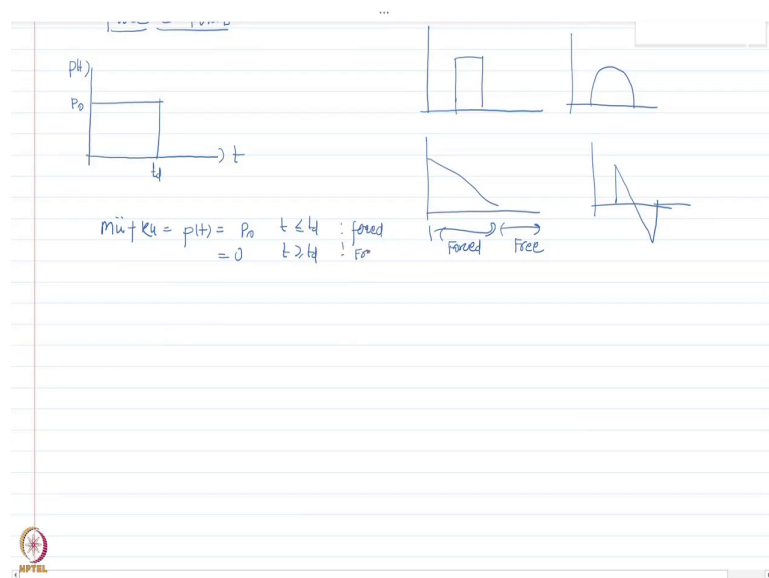 p(t)
P0
t
td
mü + ku = p(t) = P0 t ≤ td : forced
= 0 t ≥ td : Fr
Forced Free
NPTEL